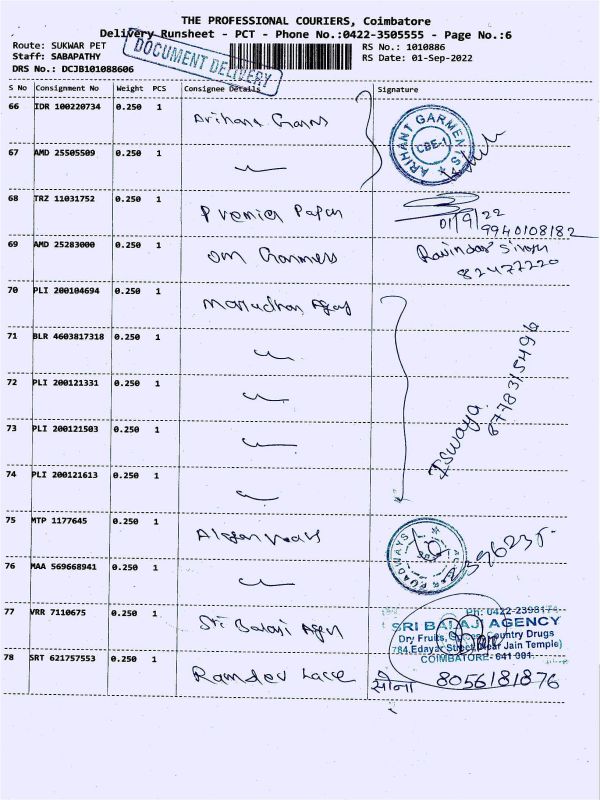 THE PROFESSIONAL COURIERS, Coimbatore
Delivery Runsheet - PCT - Phone No.:0422-3505555 - Page No.:6
Route: SUKWAR PET
RS No.: 1010886
Staff: SABAPATHY
RS Date: 01-Sep-2022
DRS No.: DCJB101088606
DOCUMENT DELIVERY
S No Consignment No Weight PCS Consignee Details Signature
66 IDR 100220734 0.250 1
ARIHANT GARMENTS
CBE-1
67 AMD 25505509 0.250 1
68 TRZ 11031752 0.250 1 Premier Paper
01/9/22
9940108182
69 AMD 25283000 0.250 1 Om Garments
Ravinder Singh
82477220
70 PLI 200104694 0.250 1
71 BLR 4603817318 0.250 1
72 PLI 200121331 0.250 1
73 PLI 200121503 0.250 1
74 PLI 200121613 0.250 1
Iswarya
8778315496
75 MTP 1177645 0.250 1
ROADWAYS
76 MAA 569668941 0.250 1
77 VRR 7110675 0.250 1 Sri Balaji Agen
Ph: 0422-2398174
SRI BALAJI AGENCY
Dry Fruits, Spices, Country Drugs
784, Edayar Street, (Near Jain Temple)
COIMBATORE - 641 001.
78 SRT 621757553 0.250 1 Ramdev Lace
सोना 8056181876